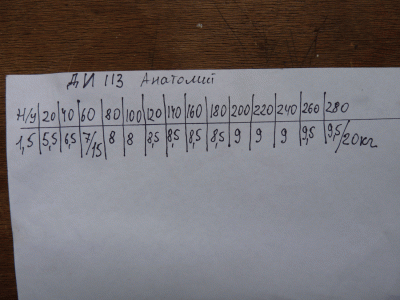 ДИ 113 Анатолий
Н/У 20 40 60 80 100 120 140 160 180 200 220 240 260 280
1,5 5,5 6,5 7/15 8 8 8,5 8,5 8,5 8,5 9 9 9 9,5 9,5/20кг